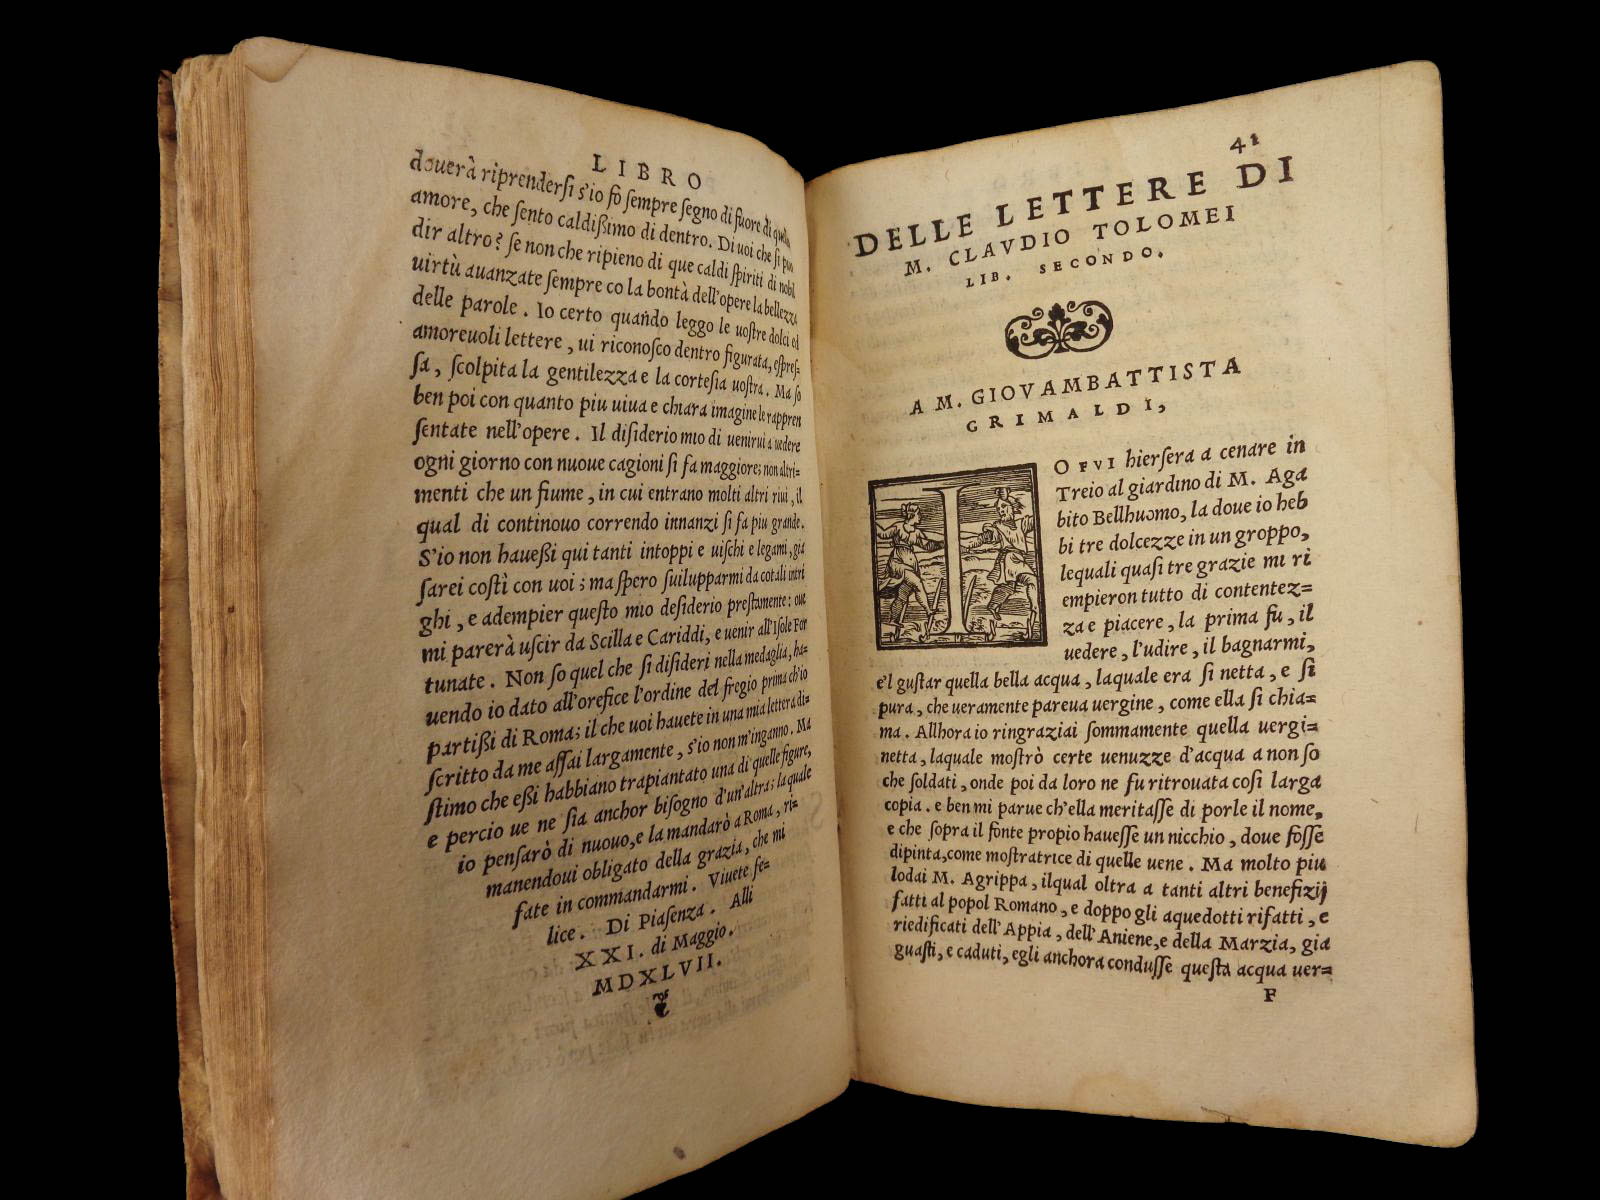 LIBRO
douerà riprenderſi s'io fò ſempre ſegno di fuore di quello
amore, che ſento caldißimo di dentro. Di uoi che ſi puo
dir altro? ſe non che ripieno di que caldi ſpiriti di nobil
uirtù auanzate ſempre co la bontà dell'opere la bellezza
delle parole. Io certo quando leggo le uoſtre dolci ed
amoreuoli lettere, ui riconoſco dentro figurata, eſpreſ=
ſa, ſcolpita la gentilezza e la corteſia uoſtra. Ma ſo
ben poi con quanto piu uiua e chiara imagine le rappren
ſentate nell'opere. Il diſiderio mio di uenirui a uedere
ogni giorno con nuoue cagioni ſi fa maggiore; non altri=
menti che un fiume, in cui entrano molti altri riui, il
qual di continouo correndo innanzi ſi fa piu grande.
S'io non haueßi qui tanti intoppi e uiſchi e legami, gia
ſarei coſtì con uoi; ma ſpero ſuilupparmi da cotali intri
ghi, e adempier queſto mio deſiderio preſtamente: oue
mi parerà uſcir da Scilla e Cariddi, e uenir all'Iſole For
tunate. Non ſo quel che ſi diſideri nella medaglia, ha=
uendo io dato all'orefice l'ordine del fregio prima ch'io
partißi di Roma; il che uoi hauete in una mia lettera di=
ſcritto da me aſſai largamente, s'io non m'inganno. Ma
ſtimo che eßi habbiano trapiantato una di quelle figure,
e percio ue ne ſia anchor biſogno d'un'altra; la quale
io penſarò di nuouo, e la mandarò a Roma, ri=
manendoui obligato della grazia, che mi
fate in commandarmi. Viuete fe=
lice. Di Piaſenza. Alli
XXI. di Maggio.
MDXLVII.
41
DELLE LETTERE DI
M. CLAVDIO TOLOMEI
LIB. SECONDO.
A M. GIOVAMBATTISTA
GRIMALDI,
IO FVI hierſera a cenare in
Treio al giardino di M. Aga
bito Bellhuomo, la doue io heb
bi tre dolcezze in un groppo,
lequali quaſi tre grazie mi ri
empieron tutto di contentez=
za e piacere, la prima fu, il
uedere, l'udire, il bagnarmi,
e'l guſtar quella bella acqua, laquale era ſi netta, e ſi
pura, che ueramente pareua uergine, come ella ſi chia=
ma. Allhora io ringraziai ſommamente quella uergi=
netta, laquale moſtrò certe uenuzze d'acqua a non ſo
che ſoldati, onde poi da loro ne fu ritrouata coſi larga
copia. e ben mi parue ch'ella meritaſſe di porle il nome,
e che ſopra il fonte propio haueſſe un nicchio, doue foſſe
dipinta, come moſtratrice di quelle uene. Ma molto piu
lodai M. Agrippa, ilqual oltra a tanti altri benefizij
fatti al popol Romano, e doppo gli aquedotti rifatti, e
riedificati dell'Appia, dell'Aniene, e della Marzia, gia
guaſti, e caduti, egli anchora conduſſe queſta acqua uer=
F